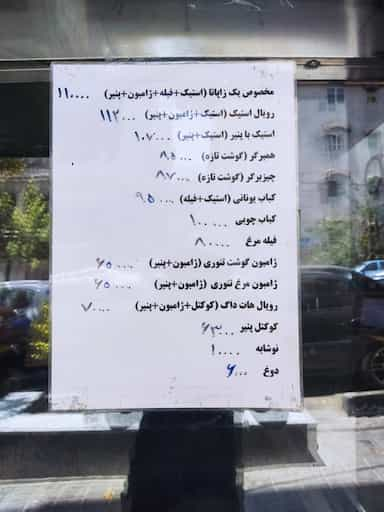 مخصوص پک زاپاتا (استیک+فیله+ژامبون+پنیر) ۱۱۰۰۰۰
رویال استیک (استیک+ژامبون+پنیر) ۱۱۲۰۰۰
استیک با پنیر (استیک+پنیر) ۱۰۷۰۰۰
همبرگر (گوشت تازه) ۸۵۰۰۰
چیزبرگر (گوشت تازه) ۸۷۰۰۰
کباب یونانی (استیک+فیله) ۹۵۰۰۰
کباب چوبی ۱۰۰۰۰۰
فیله مرغ ۸۰۰۰۰
ژامبون گوشت تنوری (ژامبون+پنیر) ۶۵۰۰۰
ژامبون مرغ تنوری (ژامبون+پنیر) ۶۵۰۰۰
رویال هات داگ (کوکتل+ژامبون+پنیر) ۷۰۰۰۰
کوکتل پنیر ۶۳۰۰۰
نوشابه ۱۰۰۰۰
دوغ ۶۰۰۰